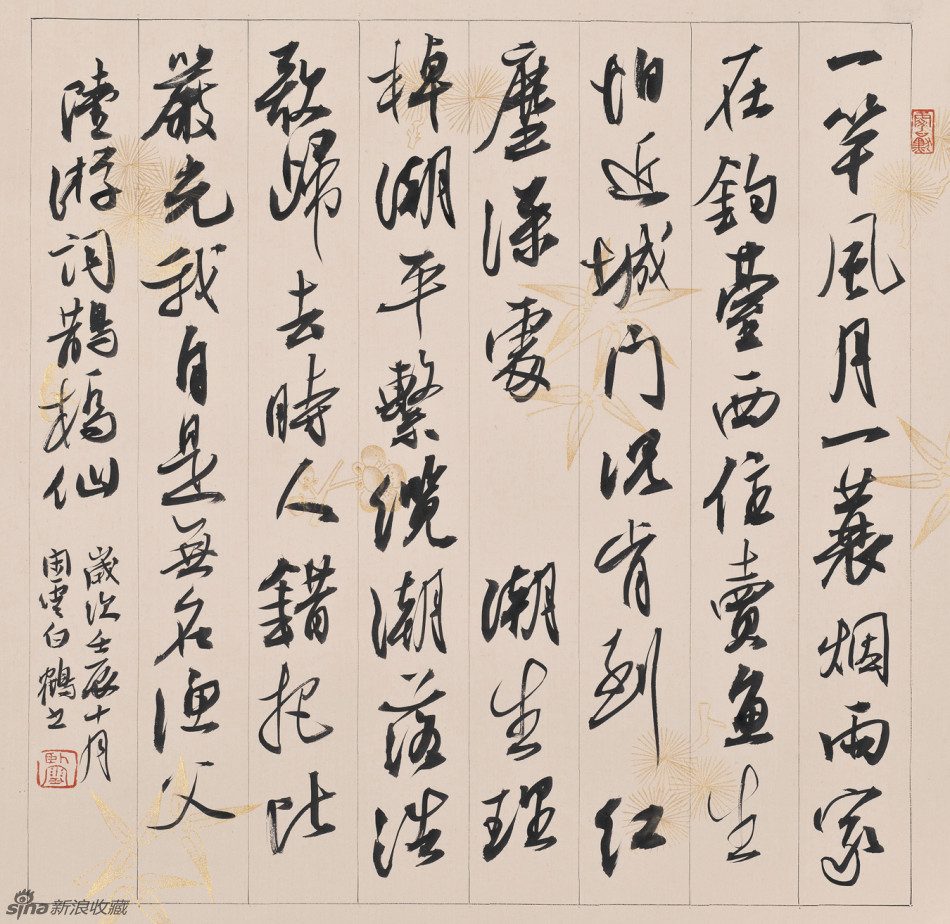 一竿風月一蓑烟雨家
在釣臺西住賣魚生
怕近城門況肯到紅
塵深處 潮生理
棹潮平繫纜潮落浩
歌歸去時人錯把比
嚴光我自是無名漁父
陸游词鵲橋仙
歲次壬辰十月
白鶴书
sina新浪收藏